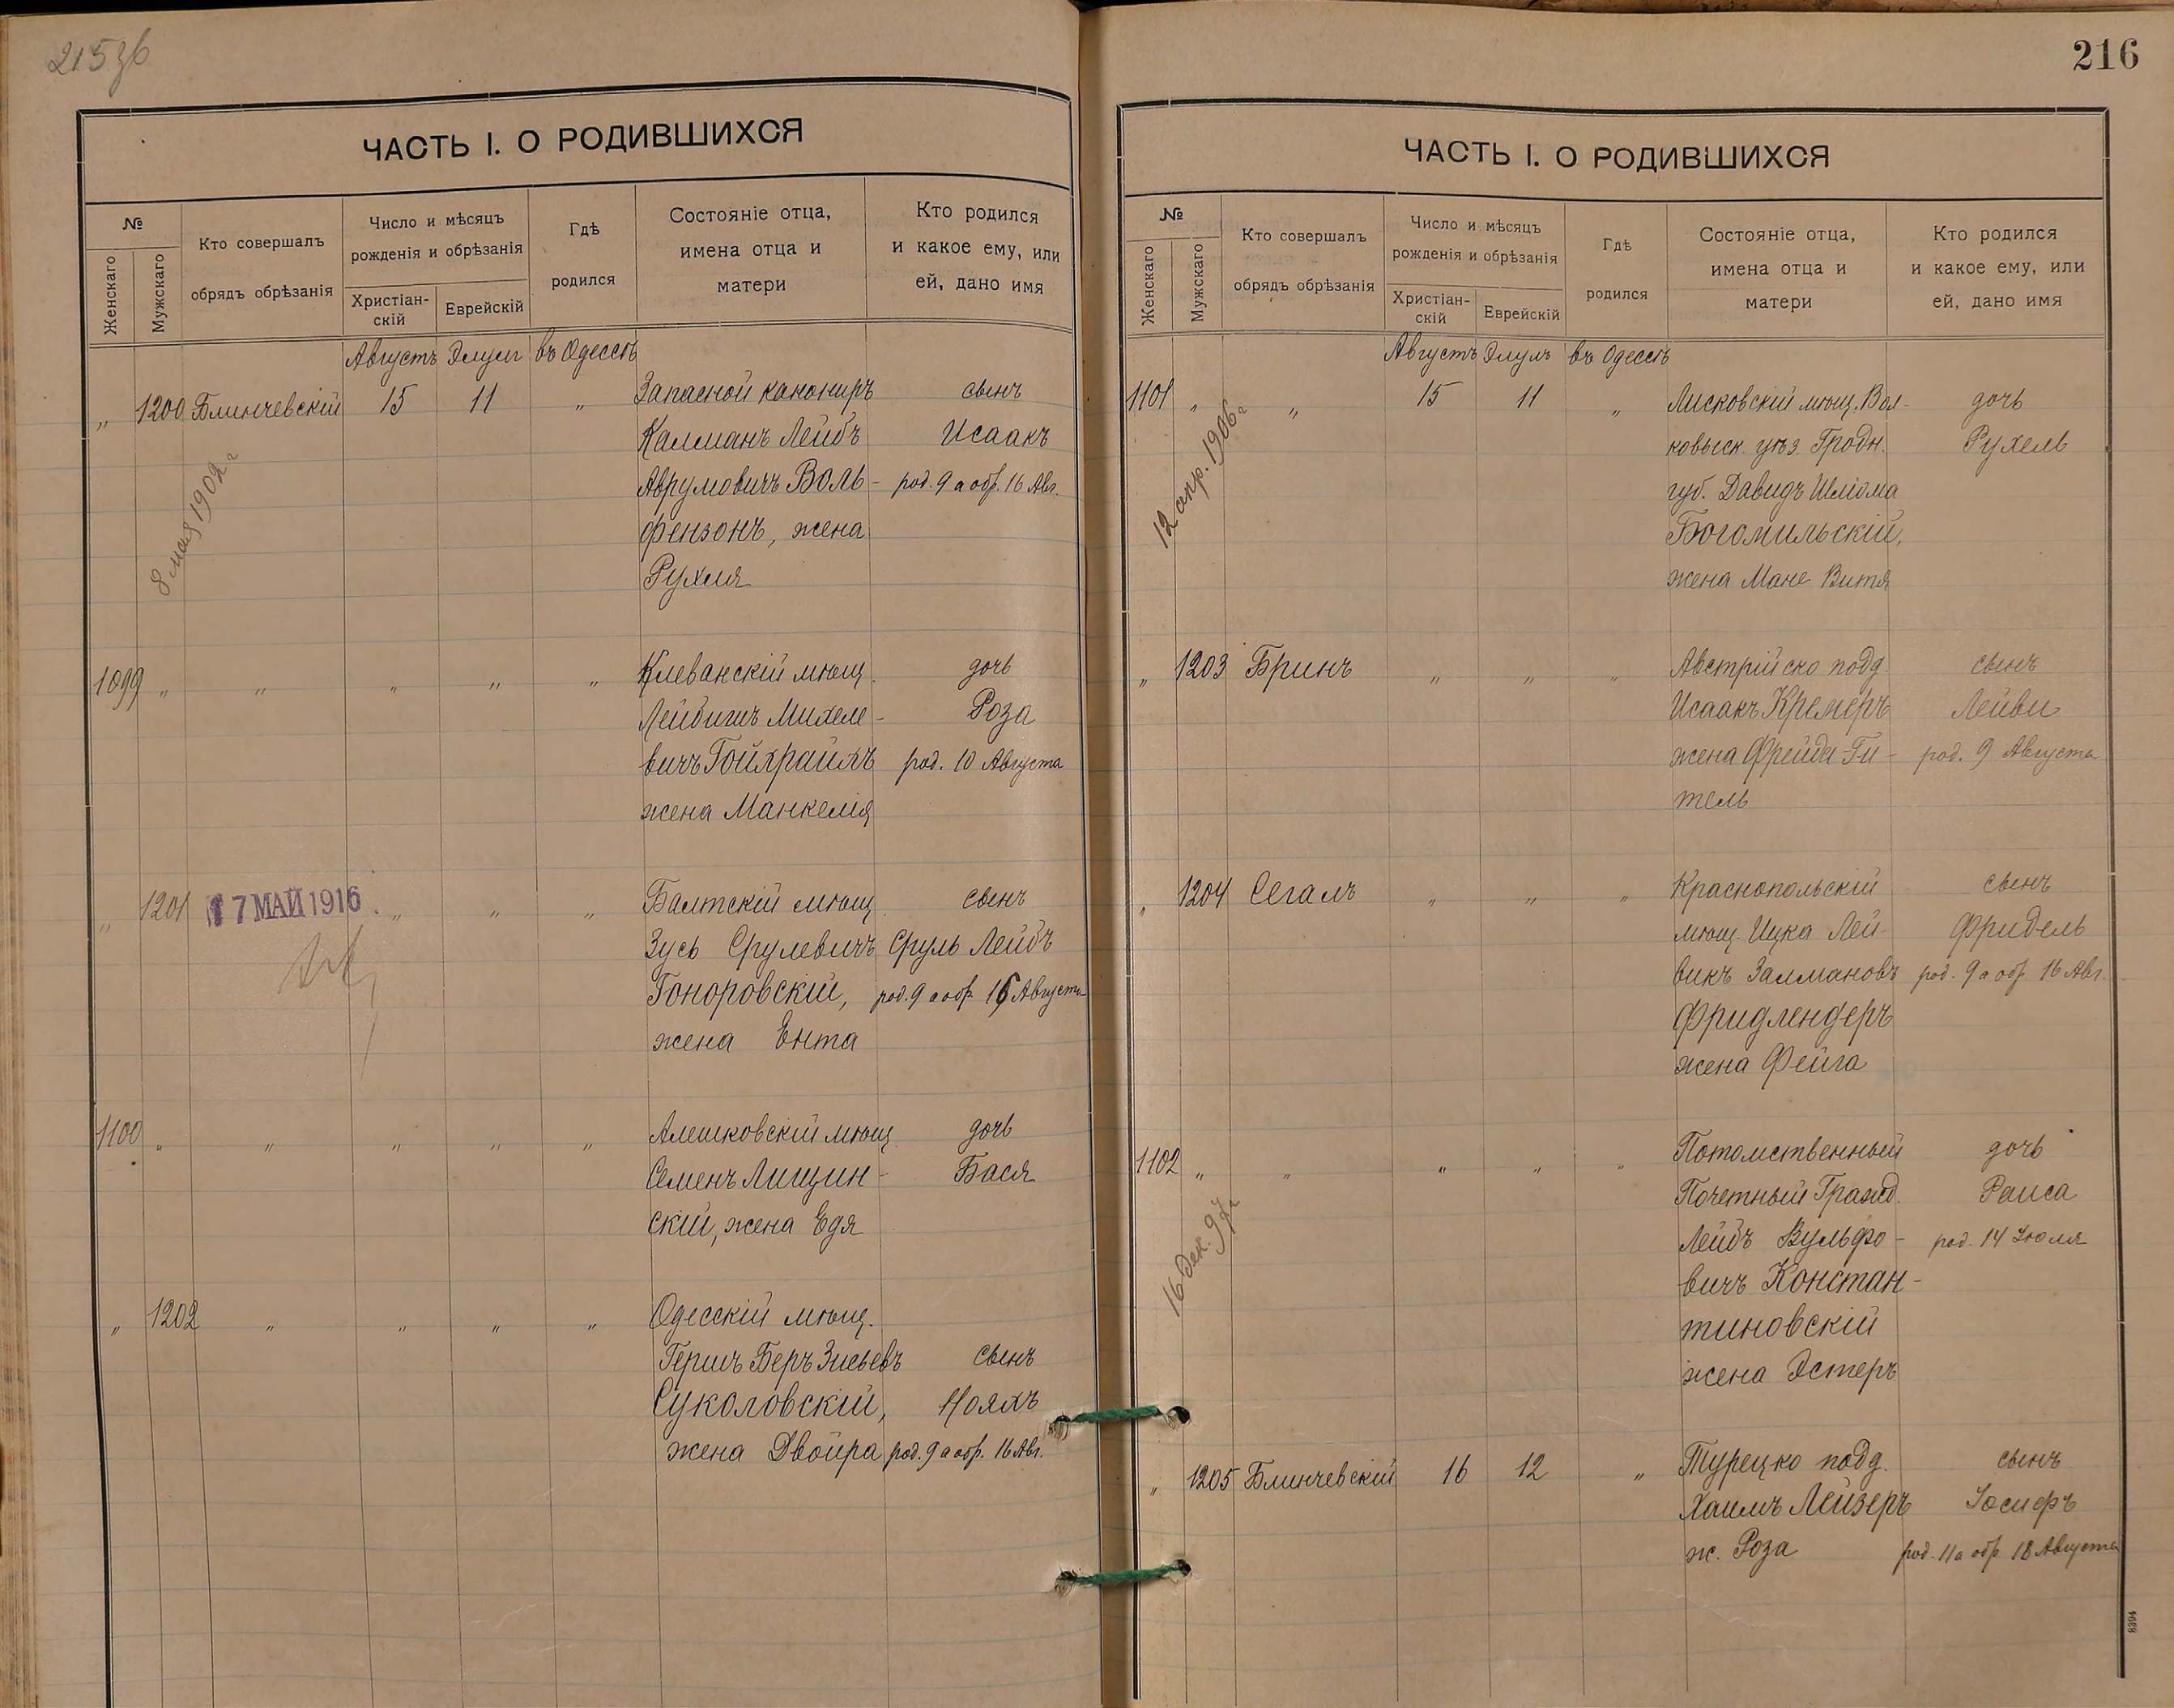 215зб
ЧАСТЬ I. О РОДИВШИХСЯ
№
Женскаго
Мужскаго
Кто совершалъ
обрядъ обрѣзанія
Число и мѣсяцъ
рожденія и обрѣзанія
Христіан-
скій
Еврейскій
Гдѣ
родился
Состояніе отца,
имена отца и
матери
Кто родился
и какое ему, или
ей, дано имя
Августъ Элулъ въ Одессѣ
„ 1200 Блинчевскій 15 11 „ Запасной канониръ сынъ
Калманъ Лейбъ Исаакъ
Аврумовичъ Воль- род. 9 а обр. 16 Авг.
фензонъ, жена
Рухля
8 мая 1902 г
1099 „ „ „ „ „ Клеванскій мѣщ. дочь
Лейбишъ Михеле- Роза
вичъ Гойхрайхъ род. 10 Августа
жена Манкелія
„ 1201 17 МАЙ 1916 „ „ „ Балтскій мѣщ. сынъ
Зусь Срулевичъ Сруль Лейбъ
Гоноровскій, род. 9 а обр. 16 Августа
жена Ента
1100 „ „ „ „ „ Алешковскій мѣщ. дочь
Семенъ Лищин- Бася
скій, жена Едя
„ 1202 „ „ „ „ Одесскій мѣщ.
Гершъ Беръ Зисьевъ сынъ
Суколовскій, Нояхъ
жена Двойра род. 9 а обр. 16 Авг.
216
ЧАСТЬ I. О РОДИВШИХСЯ
№
Женскаго
Мужскаго
Кто совершалъ
обрядъ обрѣзанія
Число и мѣсяцъ
рожденія и обрѣзанія
Христіан-
скій
Еврейскій
Гдѣ
родился
Состояніе отца,
имена отца и
матери
Кто родился
и какое ему, или
ей, дано имя
Августъ Элулъ въ Одессѣ
1101 „ „ 15 11 „ Лисковскій мѣщ. Вол- дочь
ковыск. уѣз. Гродн. Рухель
губ. Давидъ Шлёма
Богомильскій,
жена Мане Витя
12 апр. 1906 г
„ 1203 Бринъ „ „ „ Австрійско подд. сынъ
Исаакъ Кремеръ Лейви
жена Фрейда-Ги- род. 9 Августа
тель
„ 1204 Сегалъ „ „ „ Краснопольскій сынъ
мѣщ. Ицка Лей- Фридель
викъ Залмановъ род. 9 а обр. 16 Авг.
Фридлендеръ
жена Фейга
1102 „ „ „ „ „ Потомственный дочь
Почетный Гражд. Раиса
Лейбъ Вульфо- род. 14 Іюля
вичъ Констан-
тиновскій
жена Эстеръ
16 дек. 97 г
„ 1205 Блинчевскій 16 12 „ Турецко подд. сынъ
Хаимъ Лейзеръ Іосифъ
ж. Роза род. 11 а обр. 18 Августа
8394